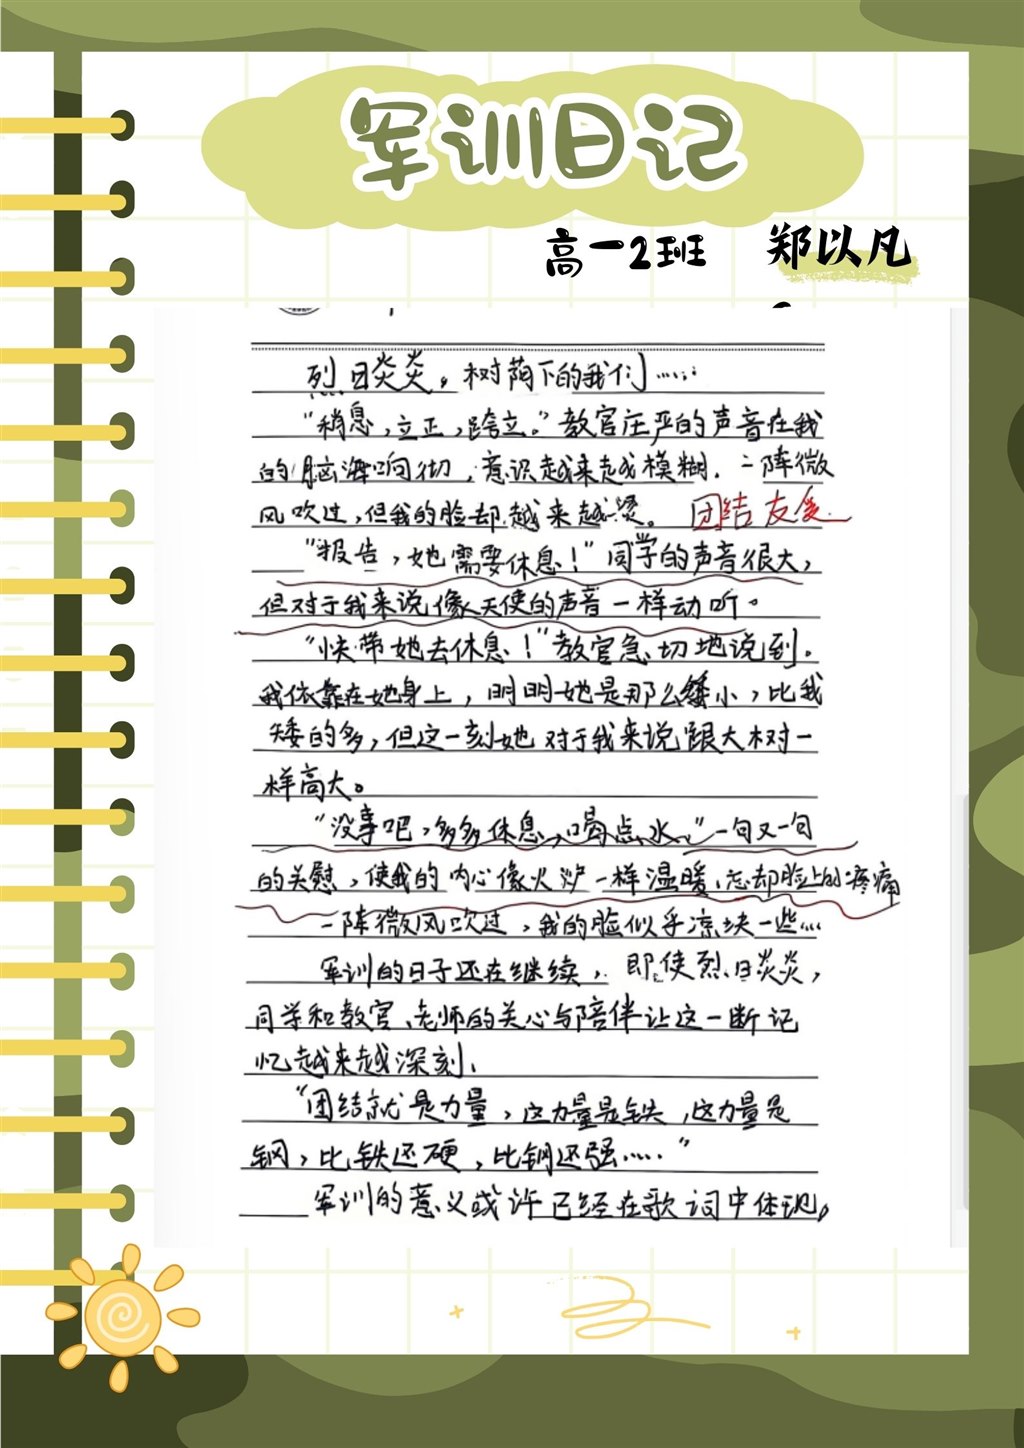 军训日记
高一2班 郑以凡
烈日炎炎。树荫下的我们……
“稍息,立正,跨立。”教官庄严的声音在我
的脑海响彻,意识越来越模糊.一阵微
风吹过,但我的脸却越来越烫。 团结友爱
“报告,她需要休息!”同学的声音很大,
但对于我来说像天使的声音一样动听。
“快带她去休息!”教官急切地说到。
我依靠在她身上,明明她是那么矮小,比我
矮的多,但这一刻她对于我来说跟大树一
样高大。
“没事吧,多多休息,喝点水。”一句又一句
的关慰,使我的内心像火炉一样温暖、忘却脸上的疼痛
一阵微风吹过,我的脸似乎凉快一些…
军训的日子还在继续,即使烈日炎炎,
同学和教官、老师的关心与陪伴让这一断记
忆越来越深刻、
“团结就是力量,这力量是铁,这力量是
钢,比铁还硬,比钢还强……”
军训的意义或许已经在歌词中体现。